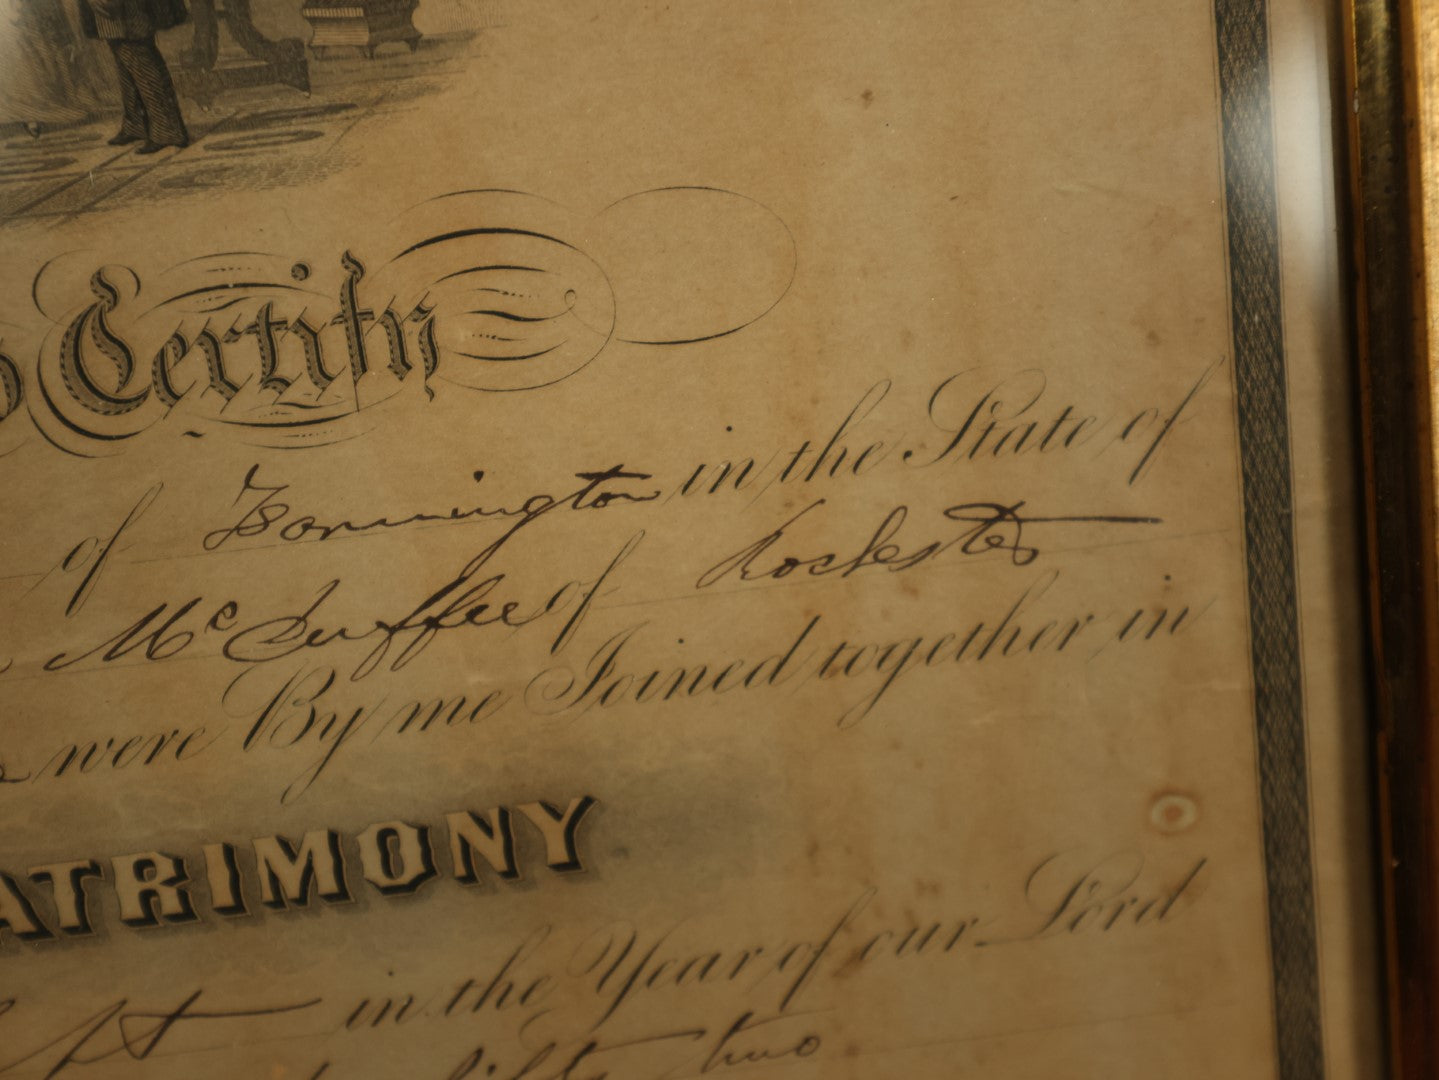 Certify
of Farmington in the State of
Mc Duffee of Rochester
were By me Joined together in
ATRIMONY
st in the Year of our Lord
fifty two